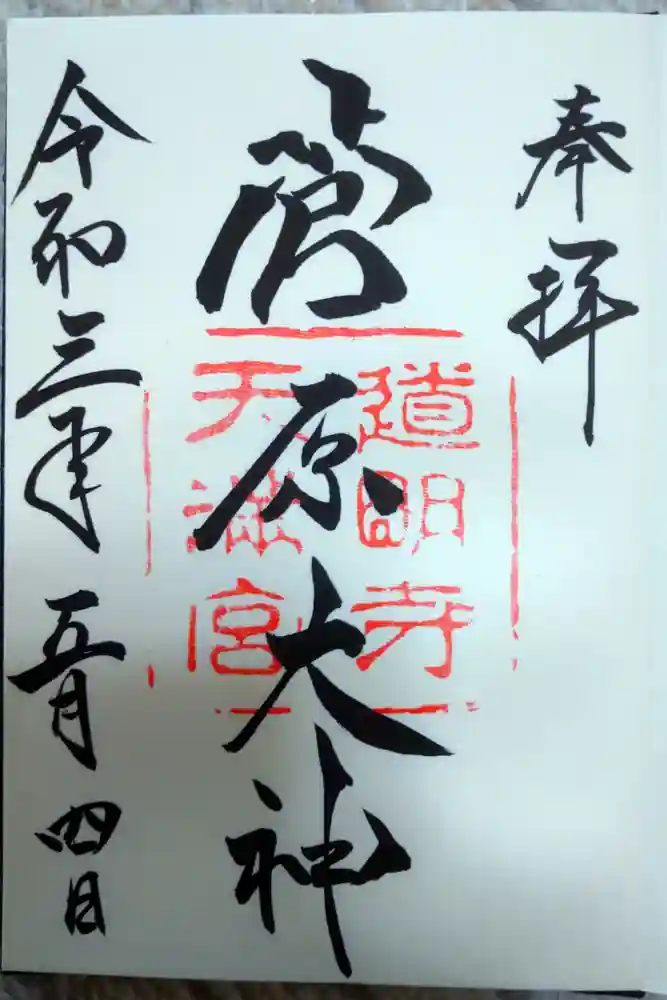 奉拝
菅原大神
道明寺
天満宮
令和三年五月四日